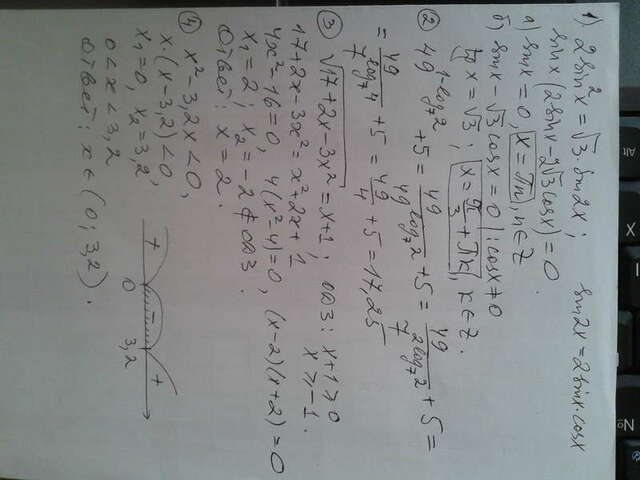 1) 2sin²x = √3·sin2x;   sin2x = 2sinx·cosx
sinx(2sinx - 2√3cosx) = 0.
а) sinx = 0, x = πn, n∈Z
б) sinx - √3cosx = 0 | : cosx ≠ 0
tgx = √3; x = π/3 + πk, k∈Z.
② 49^(1-log₇2) + 5 = 49/49^(log₇2) + 5 = 49/7^(2log₇2) + 5 =
= 49/7^(log₇4) + 5 = 49/4 + 5 = 17,25
③ √(17+2x-3x²) = x+1; ОДЗ: x+1≥0
x≥-1.
17+2x-3x² = x²+2x+1
4x²-16=0, 4(x²-4)=0, (x-2)(x+2)=0
x₁=2; x₂=-2 ∉ ОДЗ.
Ответ: x = 2.
④ x²-3,2x<0,
x·(x-3,2)<0,
x₁=0, x₂=3,2,
+ - +
0 3,2
0<x<3,2
Ответ: x∈(0; 3,2).
Alt
X
№